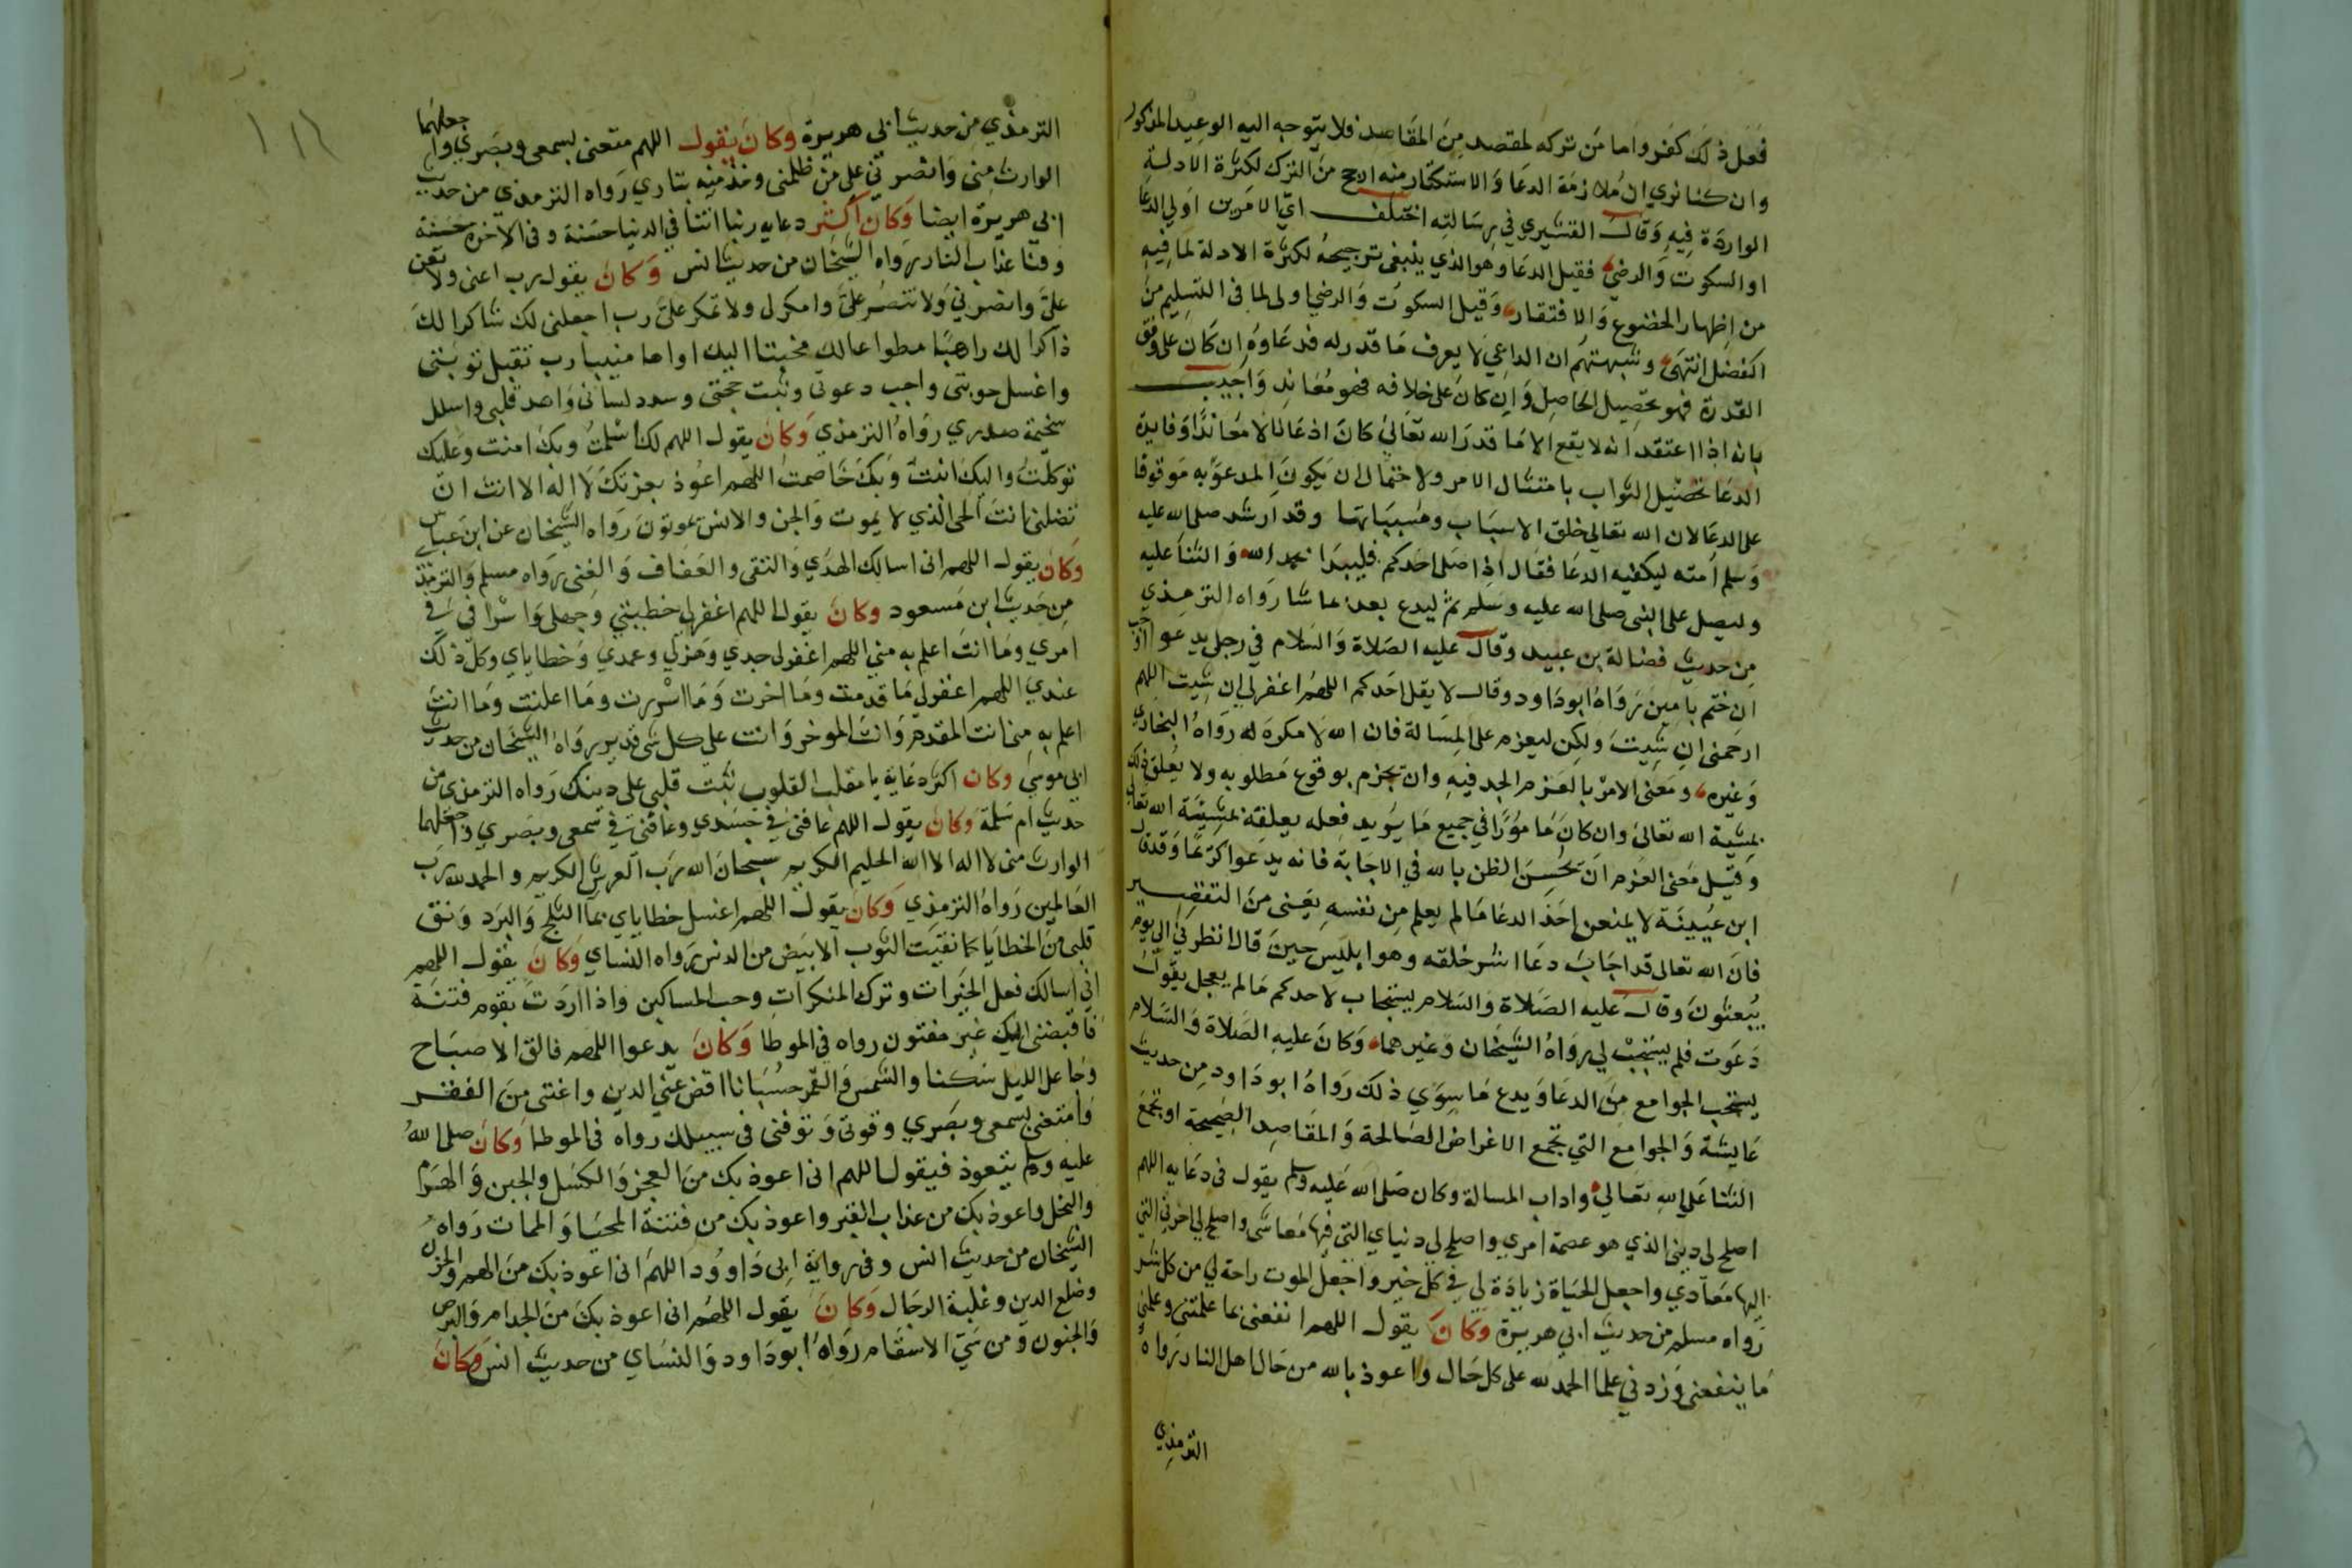 فعل ذلك كفر واما من تركه لمقصد من المقاصد فلا يتوجه اليه الوعيد المذكور
وان كنا نري ان ملازمة الدعا والاستكثار منه ارجح من الترك لكثرة الادلة
الواردة فيه وقال القشيري في رسالته اختلف اي الامرين اولي الدعا
او السكوت والرضي فقيل الدعا وهو الذي ينبغي ترجيحه لكثرة الادلة لما فيه
من اظهار الخضوع والافتقار وقيل السكوت والرضي اولى لما في التسليم من
الفضل انتهى وشبهتهم ان الداعي لا يعرف ما قدر له فدعاوه ان كان على وفق
القدرة فهو تحصيل الحاصل وان كان على خلافه فهو معاند واجيب
بانه اذا اعتقد انه لا يقع الا ما قدر الله تعالى كان اذعانا لا معاندا وفايدة
الدعا تحصيل الثواب بامتثال الامر ولاحتمال ان يكون المدعو به موقوفا
على الدعا لان الله تعالى خلق الاسباب ومسبباتها وقد ارشد صلى الله عليه
وسلم امته ليكفيه الدعا فقال اذا صلى احدكم فليبدا بحمد الله والثنا عليه
وليصل على النبي صلى الله عليه وسلم ثم ليدع بعد ما شا رواه الترمذي
من حديث فضالة بن عبيد وقال عليه الصلاة والسلام في رجل يدعو اوجب
ان ختم بامين رواه ابو داود وقال لا يقل احدكم اللهم اغفر لي ان شيت اللهم
ارحمني ان شيت ولكن ليعزم على المسالة فان الله لا مكره له رواه البخاري
وغيره ومعنى الامر بالعزم الجد فيه وان يجزم بوقوع مطلوبه ولا يعلق ذلك
بمشية الله تعالى وان كان مامورا في جميع ما يريد فعله يعلقه بمشيئة الله تعالى
وقيل معنى العزم ان تحسن الظن بالله في الاجابة فانه يدعوا كريما وقد قال
ابن عيينة لا يمنعن احد الدعا ما لم يعلم من نفسه يعني من التقصير
فان الله تعالى قد اجاب دعا اشر خلقه وهو ابليس حين قال انظرني الي يوم
يبعثون وقال عليه الصلاة والسلام يستجاب لاحدكم ما لم يعجل يقول
دعوت فلم يستجب لي رواه الشيخان وغيرهما وكان عليه الصلاة والسلام
يستحب الجوامع من الدعا ويدع ما سوي ذلك رواه ابو داود من حديث
عايشة والجوامع التي تجمع الاغراض الصالحة والمقاصد الصحيحة او تجمع
الثنا على الله تعالي واداب المسالة وكان صلى الله عليه وسلم يقول في دعايه اللهم
اصلح لى ديني الذي هو عصمة امري واصلح لي دنياي التي فيها معاشى واصلح لي اخرتي التي
اليها معادي واجعل الحياة زيادة لي في كل خير واجعل الموت راحة لي من كل شر
رواه مسلم من حديث ابي هريرة وكان يقول اللهم انفعني بما علمتني وعلمني
ما ينفعني وزدني علما الحمد لله على كل حال واعوذ بالله من حال اهل النار رواه
الترمذي
١١٦
الترمذي من حديث ابي هريرة وكان يقول اللهم متعني بسمعي وبصري واجعلهما
الوارث مني وانصرني على من ظلمني وخذ منه بثاري رواه الترمذي من حديث
ابي هريرة ايضا وكان اكثر دعايه ربنا اتنا في الدنيا حسنة وفي الاخرة حسنة
وقنا عذاب النار رواه الشيخان من حديث انس وكان يقول رب اعني ولا تعن
على وانصرني ولا تنصر على وامكر لى ولا تمكر على رب اجعلني لك شاكرا لك
ذاكرا لك راهبا مطواعا لك مخبتا اليك اواها منيبا رب تقبل توبتي
واغسل حوبتي واجب دعوتي وثبت حجتي وسدد لساني واهد قلبي واسلل
سخيمة صدري رواه الترمذي وكان يقول اللهم لك اسلمت وبك امنت وعليك
توكلت واليك انبت وبك خاصمت اللهم اعوذ بعزتك لا اله الا انت ان
تضلني انت الحي الذي لا يموت والجن والانس يموتون رواه الشيخان عن ابن عباس
وكان يقول اللهم اني اسالك الهدي والتقى والعفاف والغنى رواه مسلم والترمذي
من حديث ابن مسعود وكان يقول اللهم اغفر لي خطيئتي وجهلي واسرافي في
امري وما انت اعلم به مني اللهم اغفر لي جدي وهزلي وعمدي وخطاياي وكل ذلك
عندي اللهم اغفر لي ما قدمت وما اخرت وما اسررت وما اعلنت وما انت
اعلم به مني انت المقدم وانت الموخر وانت على كل شي قدير رواه الشيخان من حديث
ابي موسى وكان اكثر دعايه يا مقلب القلوب ثبت قلبي على دينك رواه الترمذي من
حديث ام سلمة وكان يقول اللهم عافني في جسدي وعافني في سمعي وبصري واجعلهما
الوارث مني لا اله الا الله الحليم الكريم سبحان الله رب العرش الكريم والحمد لله رب
العالمين رواه الترمذي وكان يقول اللهم اغسل خطاياي بما الثلج والبرد ونق
قلبي من الخطايا كما نقيت الثوب الابيض من الدنس رواه النساي وكان يقول اللهم
اني اسالك فعل الخيرات وترك المنكرات وحب المساكين واذا اردت بقوم فتنة
فاقبضني اليك غير مفتون رواه في الموطا وكان يدعوا اللهم فالق الاصباح
وجاعل الليل سكنا والشمس والقمر حسبانا اقض عني الدين واغنني من الفقر
وامتعني بسمعي وبصري وقوتي وتوفني في سبيلك رواه في الموطا وكان صلى الله
عليه وسلم يتعوذ فيقول اللهم اني اعوذ بك من العجز والكسل والجبن والهرم
والبخل واعوذ بك من عذاب القبر واعوذ بك من فتنة المحيا والممات رواه
الشيخان من حديث انس وفي رواية ابي داوود اللهم اني اعوذ بك من الهم والحزن
وضلع الدين وغلبة الرجال وكان يقول اللهم اني اعوذ بك من الجذام والبرص
والجنون ومن سيّ الاسقام رواه ابو داود والنساي من حديث انس وكان